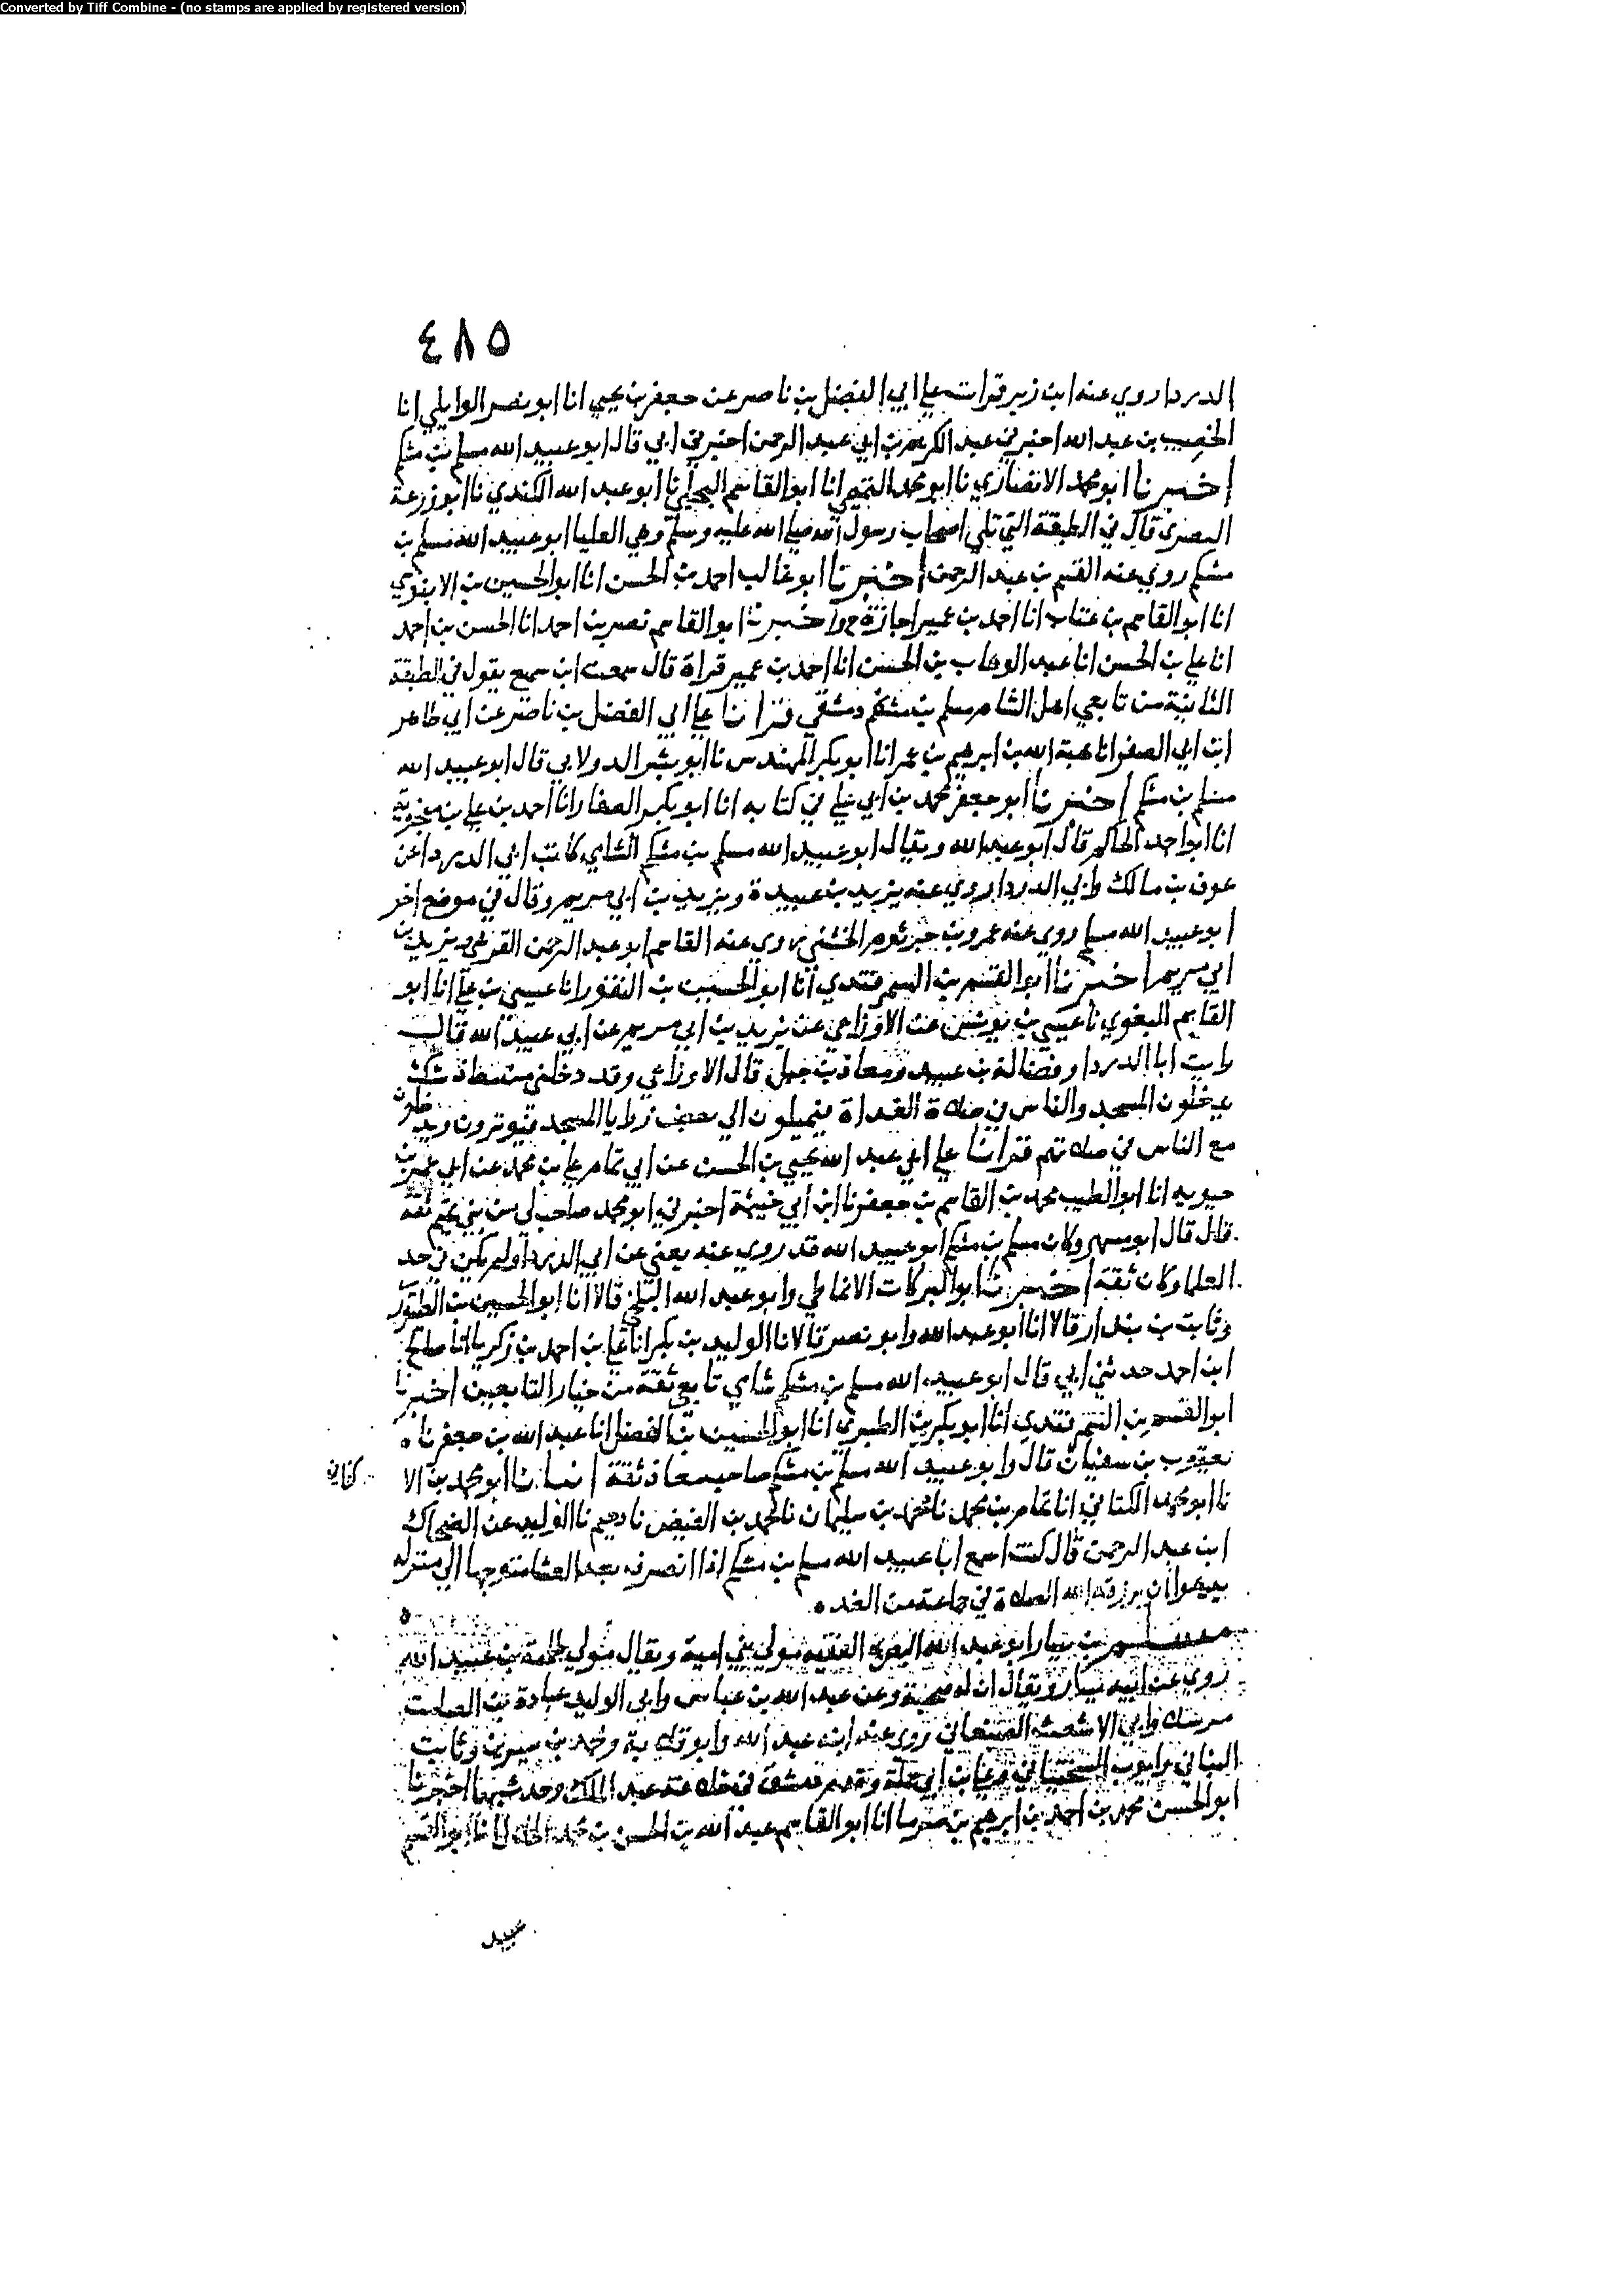 Converted by Tiff Combine - (no stamps are applied by registered version)
٤٨٥
الدردا روي عنه ابن زبر قرات علي ابي الفضل بن ناصر عن جعفر بن يحيي انا ابو نصر الوايلي انا
الخصيب بن عبد الله اخبرني عبد الكريم بن ابي عبد الرحمن اخبرني ابي قال ابو عبيد الله مسلم بن مشكم
اخبرنا ابو محمد الانصاري نا ابو محمد التميمي انا ابو القاسم البجلي نا ابو عبد الله الكندي نا ابو زرعة
البصري قال في الطبقة التي تلي اصحاب رسول الله صلي الله عليه وسلم وهي العليا ابو عبيد الله مسلم بن
مشكم روي عنه القسم بن عبد الرحمن اخبرنا ابو غالب احمد بن الحسن انا ابو الحسين بن الابنوي
انا ابو القاسم بن عتاب انا احمد بن عمير اجازة ح واخبرنا ابو القاسم نصر بن احمد انا الحسن بن احمد
انا علي بن الحسن انا عبد الوهاب بن الحسن انا احمد بن عمير قراة قال سمعت ابن سميع يقول في الطبقة
الثانية من تابعي اهل الشام مسلم بن مشكم دمشقي قرانا علي ابي الفضل بن ناصر عن ابي طاهر
ابن ابي الصقر انا هبة الله بن ابرهيم بن عمر انا ابو بكر المهندس نا ابو بشر الدولابي قال ابو عبيد الله
مسلم بن مشكم اخبرنا ابو جعفر محمد بن ابي علي في كتابه انا ابو بكر الصفار انا احمد بن علي بن منجويه
انا ابو احمد الحاكم قال ابو عبد الله ويقال ابو عبيد الله مسلم بن مشكم الشامي كاتب ابي الدردا عن
عوف بن مالك وابي الدردا روي عنه يزيد بن عبيدة ويزيد بن ابي مريم وقال في موضع اخر
ابو عبيد الله مسلم روي عنه عمرو بن جرثوم الخشني روي عنه القاسم ابو عبد الرحمن القرشي ويزيد بن
ابي مريم اخبرنا ابو القسم بن السمرقندي انا ابو الحسين بن النقور انا عيسي بن علي انا ابو
القاسم البغوي نا عيسي بن يونس عن الاوزاعي عن يزيد بن ابي مريم عن ابي عبيد الله قال
رايت ابا الدردا وفضالة بن عبيد ومعاذ بن جبل قال الاوزاعي وقد دخلني من معاذ شك
يدخلون المسجد والناس في صلاة الغداة فيميلون الي بعض زوايا المسجد فيوترون ويدخلون
مع الناس في صلاتهم قرانا علي ابي عبد الله يحيي بن الحسن عن ابي تمام علي بن محمد عن ابي عمر بن
حيويه انا ابو الطيب محمد بن القاسم بن جعفر نا ابن ابي خيثمة اخبرني ابو محمد صاحب لي من بني تميم ثقة
قال قال ابو مسهر وكان مسلم بن مشكم ابو عبيد الله قد روي عنه يعني عن ابي الدردا ولم يكن في حد
العلما وكان ثقة اخبرنا ابو البركات الانماطي وابو عبد الله البلخي قالا انا ابو الحسين بن الطيوري
وثابت بن بندار قالا انا ابو عبد الله وابو نصر قالا نا الوليد بن بكر انا علي بن احمد بن زكريا انا صالح
ابن احمد حدثني ابي قال ابو عبيد الله مسلم بن مشكم شامي تابعي ثقة من خيار التابعين اخبرنا
ابو القسم بن السمرقندي انا ابو بكر بن الطبري انا ابو الحسين بن الفضل انا عبد الله بن جعفر نا
يعقوب بن سفيان قال وابو عبيد الله مسلم بن مشكم صاحب معاذ ثقة انبانا ابو محمد بن الا
كفاني
نا ابو محمد الكتاني انا تمام بن محمد نا محمد بن سليمان نا محمد بن الفيض نا دحيم نا الوليد عن الضحاك
ابن عبد الرحمن قال كنت اسمع ابا عبيد الله مسلم بن مشكم اذا انصرف بعد العشا متوجها الي منزله
يدعوا ان يرزقه الله الصلاة في جماعة من الغد
مسلم بن يسار ابو عبد الله البصري الفقيه مولي بني امية ويقال مولي طلحة بن عبيد الله
روي عن ابيه يسار ويقال ان له صحبة وعن عبد الله بن عباس وابي الوليد عبادة بن الصامت
مرسلا وابي الاشعث الصنعاني روي عنه ابنه عبد الله وابو قلابة ومحمد بن سيرين وثابت
البناني وايوب السختياني وقدم دمشق في خلافة عبد الملك وحدث بها اخبرنا
ابو الحسن محمد بن احمد بن ابرهيم بن صرما انا ابو القاسم عبد الله بن الحسن بن محمد الخلال انا ابو القسم
عبيد